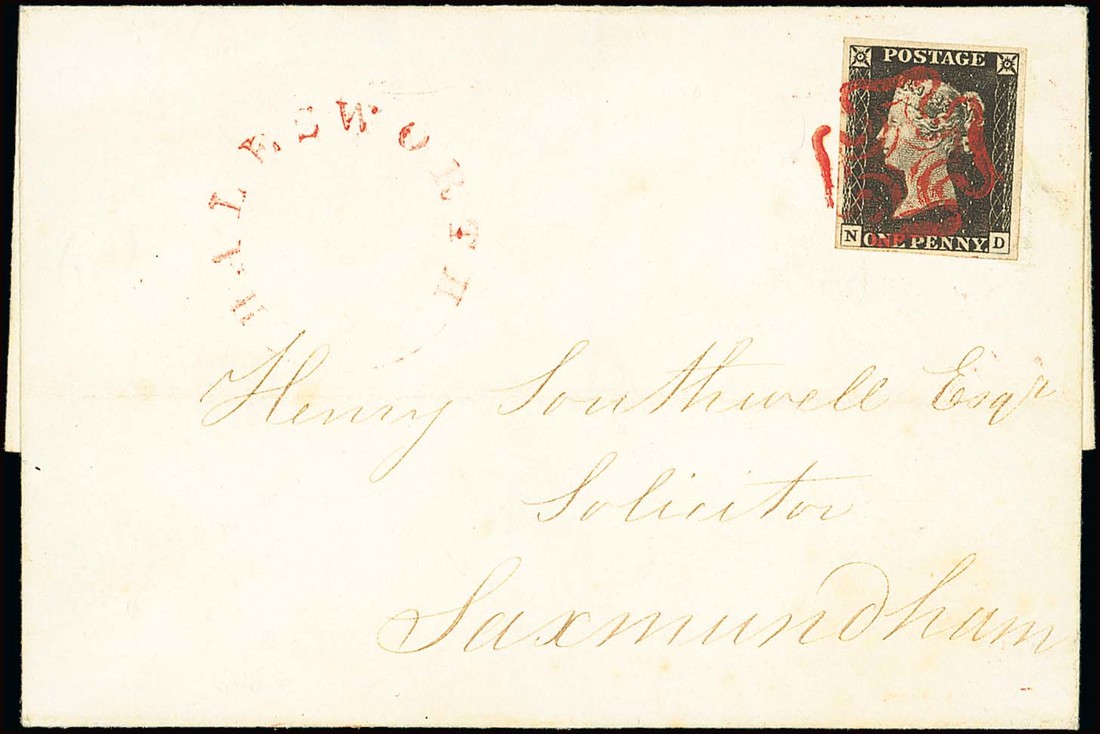 POSTAGE
N ONE PENNY. D
HALESWORTH
Henry Southwell Esqr
Solicitor
Saxmundham